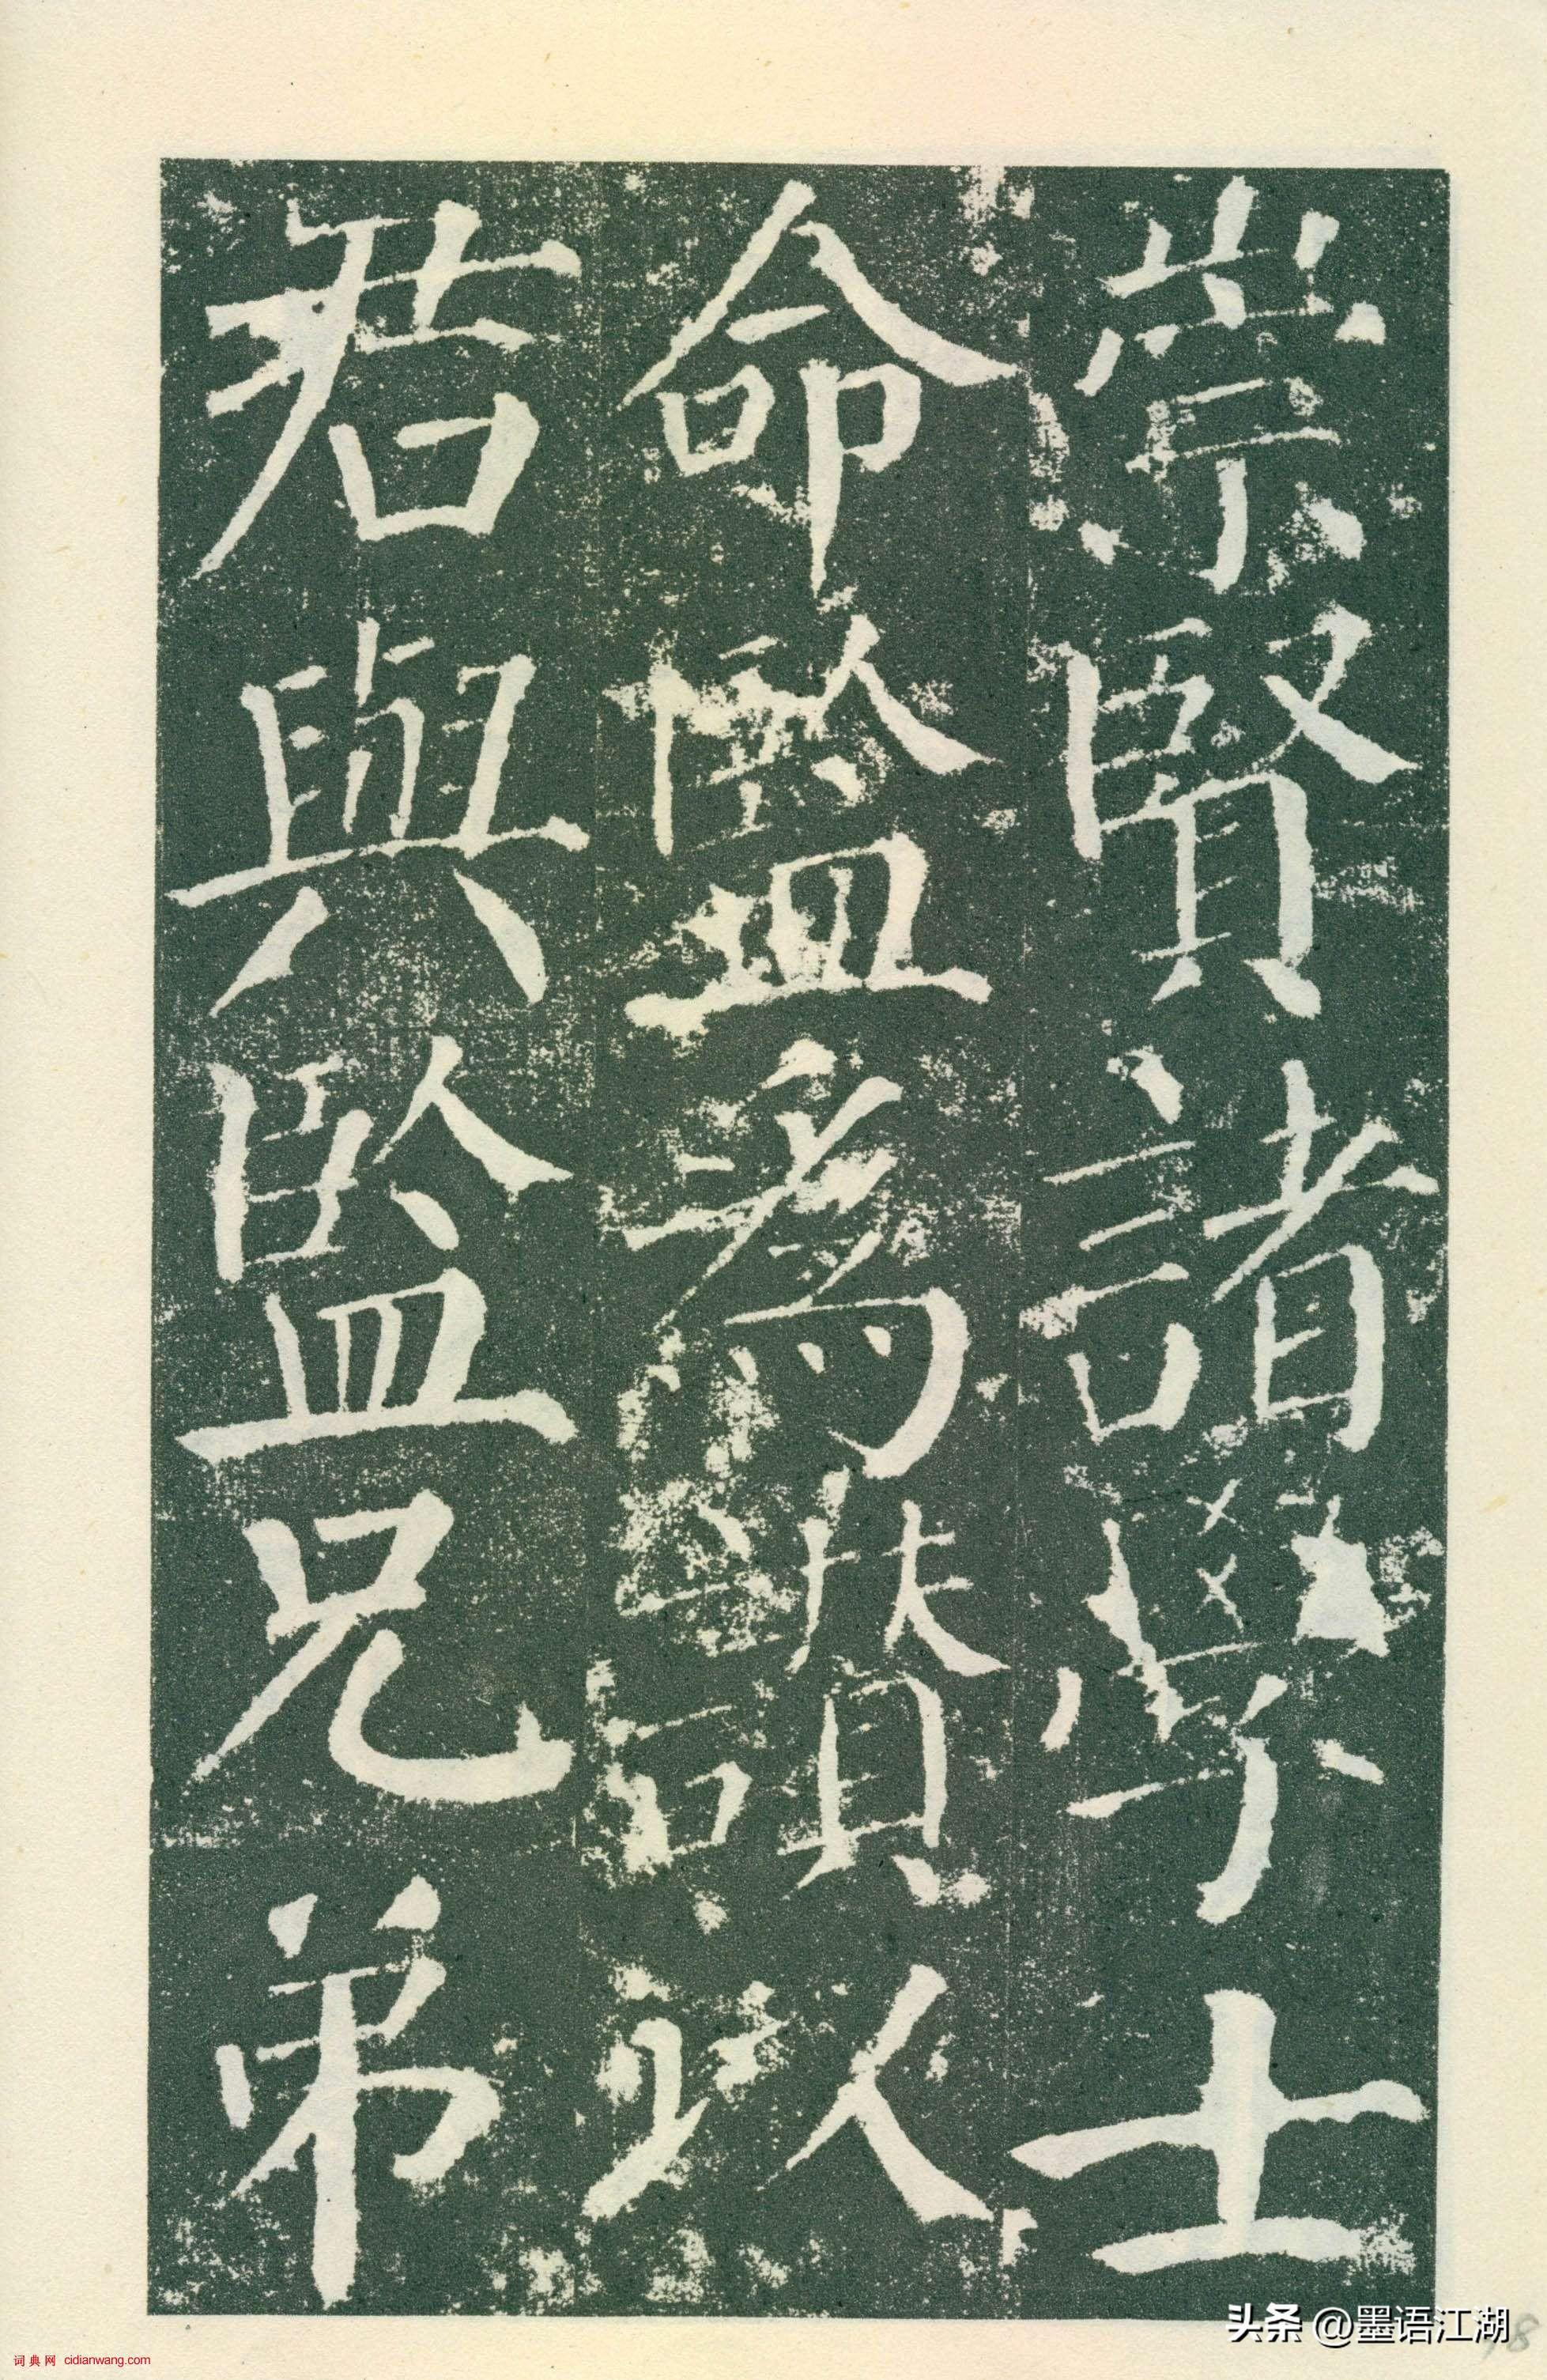 崇賢諸學士
命監爲讃以
君與監兄弟
头条 @墨语江湖
词典网 cidianwang.com